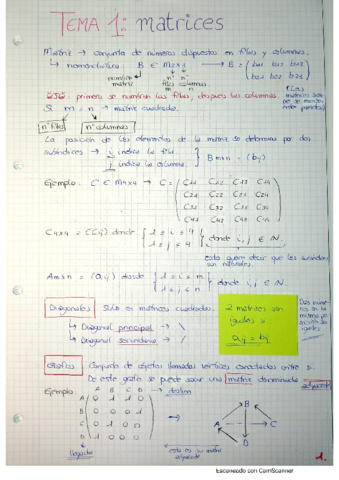 TEMA 1: matrices
Matriz → conjunto de números dispuestos en filas y columnas.
↳ nomenclatura B ∈ M2x3 → B = (b11 b12 b13
b21 b22 b23)
nombre matriz nº filas nº columnas
OJO: primero se nombran las filas, después las columnas.
Si m = n → matriz cuadrada.
nº filas nº columnas
La posición de los elementos de la matriz se determina por dos
subíndices → i indica la fila.
j indica la columna.
Bmxn = (bij)
Ejemplo: C ∈ M4x4 → C = (C11 C12 C13 C14
C21 C22 C23 C24
C31 C32 C33 C34
C41 C42 C43 C44)
C4x4 = (Cij) donde { 1 ≤ i ≤ 4
1 ≤ j ≤ 4 } donde i, j ∈ N.
esto quiere decir que los
son naturales.
Amxn = (aij) donde { 1 ≤ i ≤ m
1 ≤ j ≤ n } donde i, j ∈ N.
Diagonales Sólo en matrices cuadradas.
↳ Diagonal principal → \
↳ Diagonal secundaria → /
2 matrices son
iguales si
aij = bij
Grafos Conjunto de objetos llamados vértices conectados entre sí.
De este grafo se puede sacar una matriz denominada adyacente
Ejemplo: A B C D → destino
A 0 1 1 0
B 0 0 0
C 0 1 0
D 1 0 0 0
llegada
esta es su matriz
adyacente
B
A C
D
1.
Escaneado con CamScanner